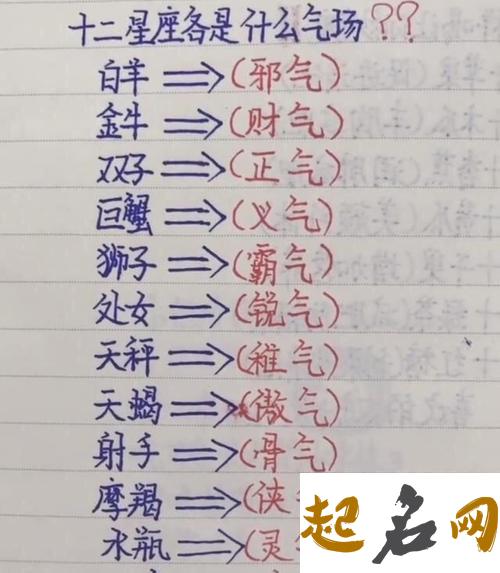 十二星座各是什么气场??
白羊⇒(邪气)
金牛⇒(财气)
双子⇒(正气)
巨蟹⇒(义气)
狮子⇒(霸气)
处女⇒(锐气)
天秤⇒(稚气)
天蝎⇒(傲气)
射手⇒(骨气)
摩羯⇒(侠
水瓶⇒(灵
起名网